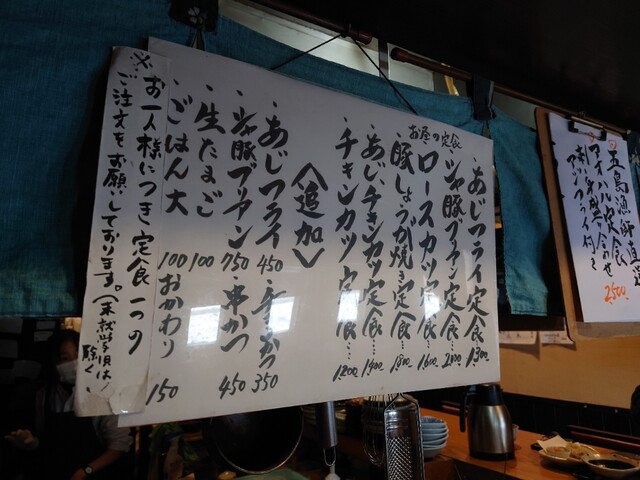 お昼の定食
・あじフライ定食…1,300
・シャ豚ブリアン定食…2,000
・ロースカツ定食…1,600
・豚しょうが焼き定食…1,800
・あじ、チキンカツ定食…1,400
・チキンカツ定食…1,200
〈追加〉
・あじフライ 450
・チキンカツ 350
・シャ豚ブリアン 750
・串かつ 450
・生たまご 100
・ごはん大 100
おかわり 150
※お一人様につき定食一つの
ご注文をお願いしております。(未就学児は除く)
五島漁師直送
アオハル定食
刺身盛り合わせ
アジフライ付き
2,500